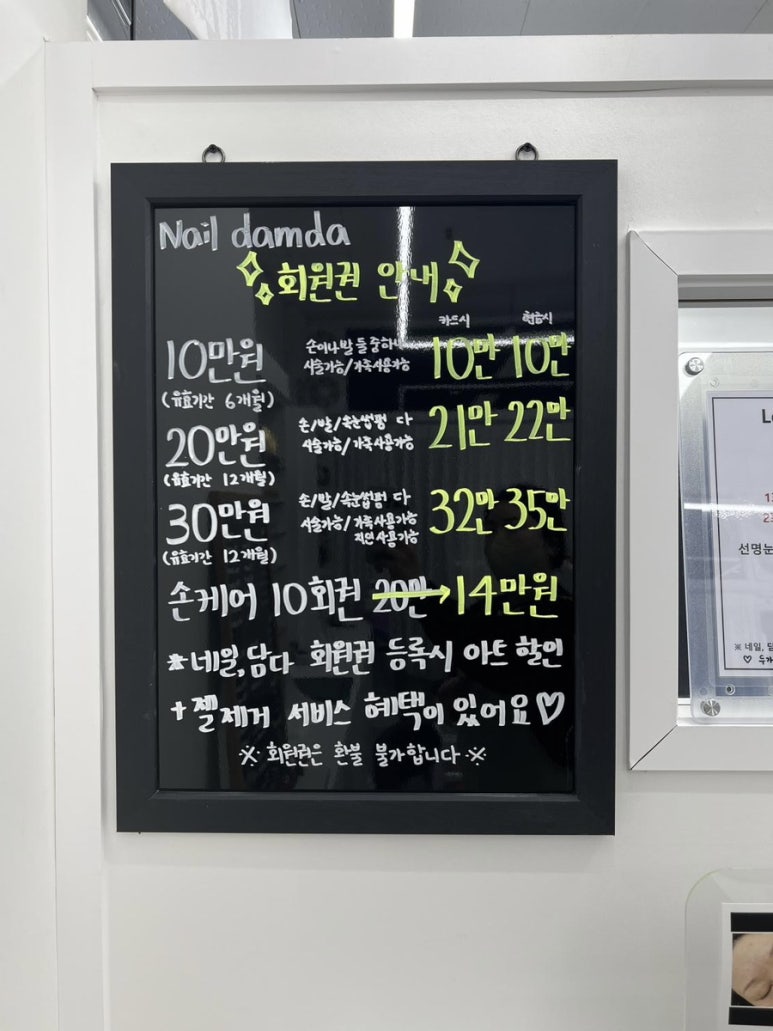 Nail damda
회원권 안내
카드시 현금시
10만원 손이나 발 둘중하나 10만 10만
시술가능/가족사용가능
(유효기간 6개월)
20만원 손/발/속눈썹펌 다 21만 22만
시술가능/가족사용가능
(유효기간 12개월)
30만원 손/발/속눈썹펌 다 32만 35만
시술가능/가족사용가능
지인사용가능
(유효기간 12개월)
손케어 10회권 20만→14만원
*네일,담다 회원권 등록시 아트 할인
+젤제거 서비스 혜택이 있어요♡
※ 회원권은 환불 불가합니다 ※
선명눈
※ 네일, 담